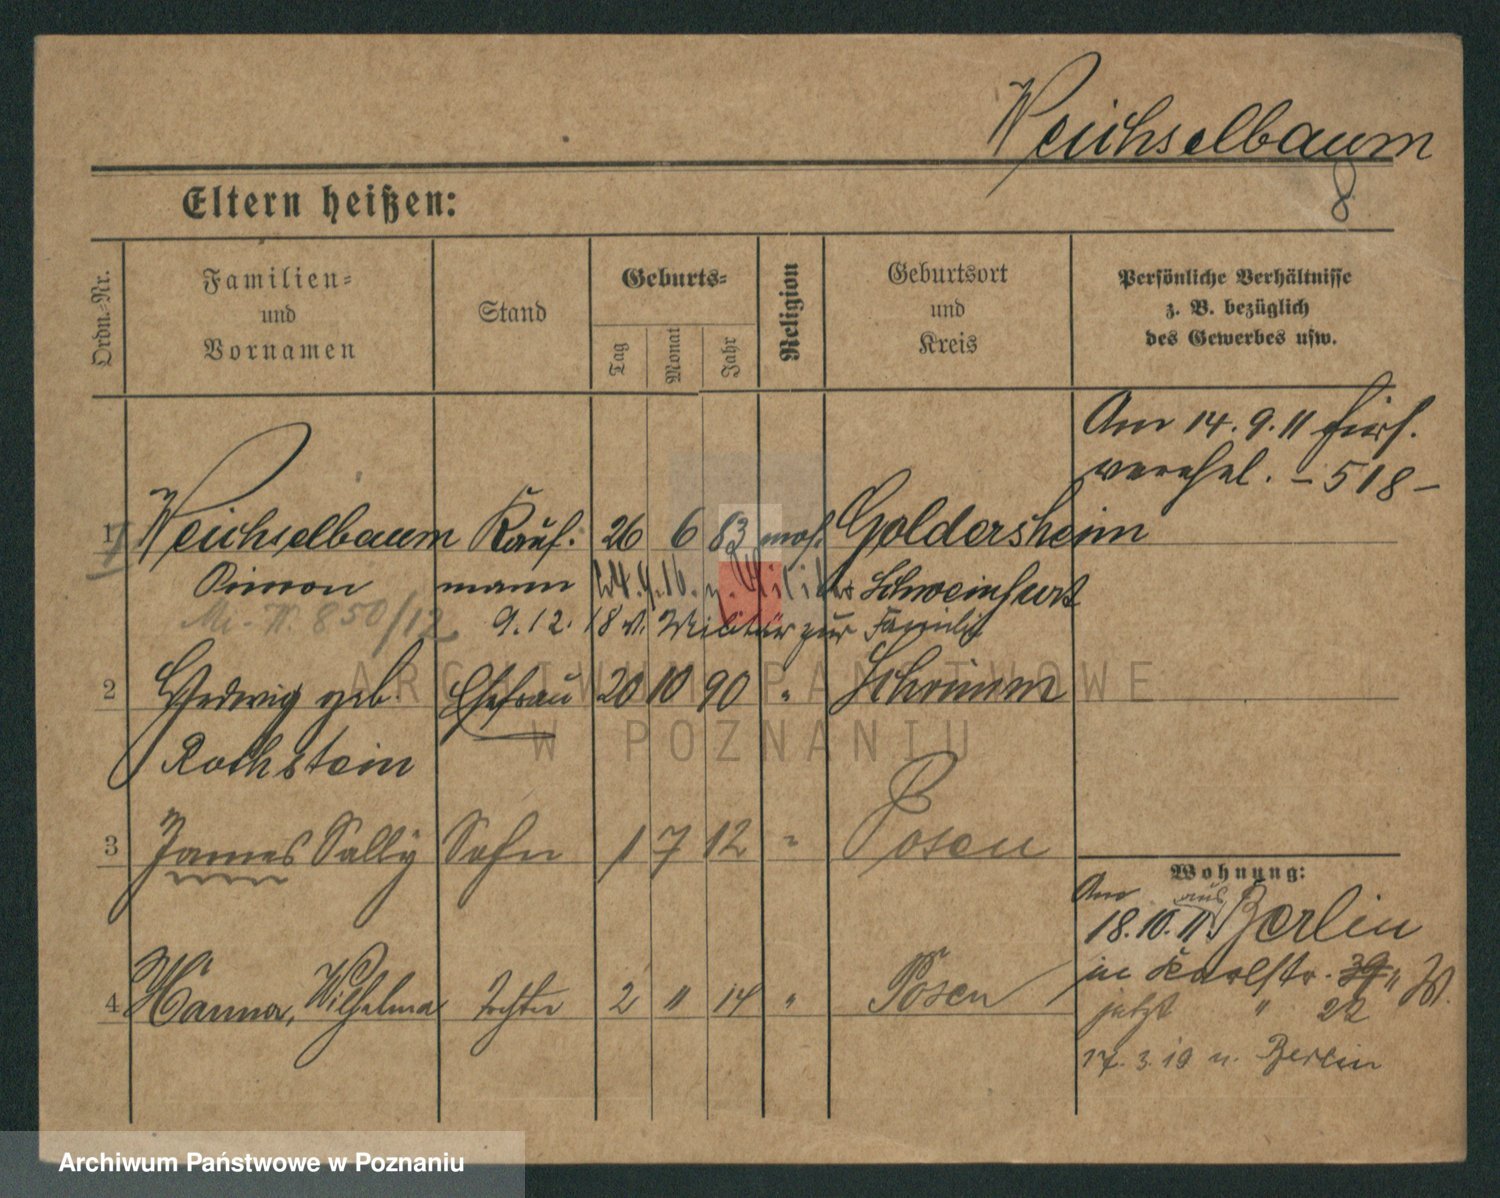 Weichselbaum
8
Eltern heißen:
Ordn.-Nr.
Familien-
und
Vornamen
Stand
Geburts-
Tag
Monat
Jahr
Religion
Geburtsort
und
Kreis
Persönliche Verhältnisse
z. B. bezüglich
des Gewerbes usw.
Am 14. 9. 11 hier
verehel. – 518 –
1 Weichselbaum Kauf- 26 6 83 mos. Goldersheim
Simon mann 24.9.16. n. Militär Schweinfurt
M.-N. 850/12 9.12.18 v. Militär zur Familie
2 Hedwig geb. Ehefrau 20 10 90 " Schrimm
Rothstein
3 James Sally Sohn 1 7 12 " Posen
4 Hanna, Wilhelma Tochter 2 11 14 " Posen
Wohnung:
Am
18.10.11. aus Berlin
in Karlstr. 39 II W.
jetzt " 22
17. 3. 19 n. Berlin
ARCHIWUM PAŃSTWOWE
W POZNANIU
Archiwum Państwowe w Poznaniu